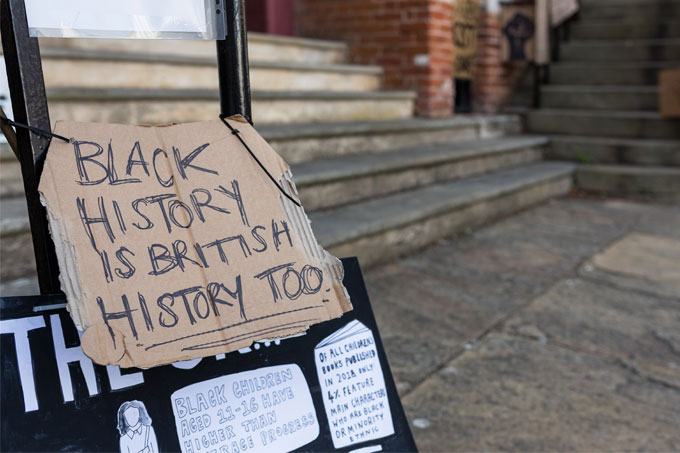 BLACK
HISTORY
IS BRITISH
HISTORY TOO.
THE
BLACK CHILDREN
AGED 11-16 HAVE
HIGHER THAN
PROGRESS
OF ALL CHILDRENS
BOOKS PUBLISHED
IN 2018 ONLY
4% FEATURE
MAIN CHARACTERS
WHO ARE BLACK
OR MINORITY
ETHNIC